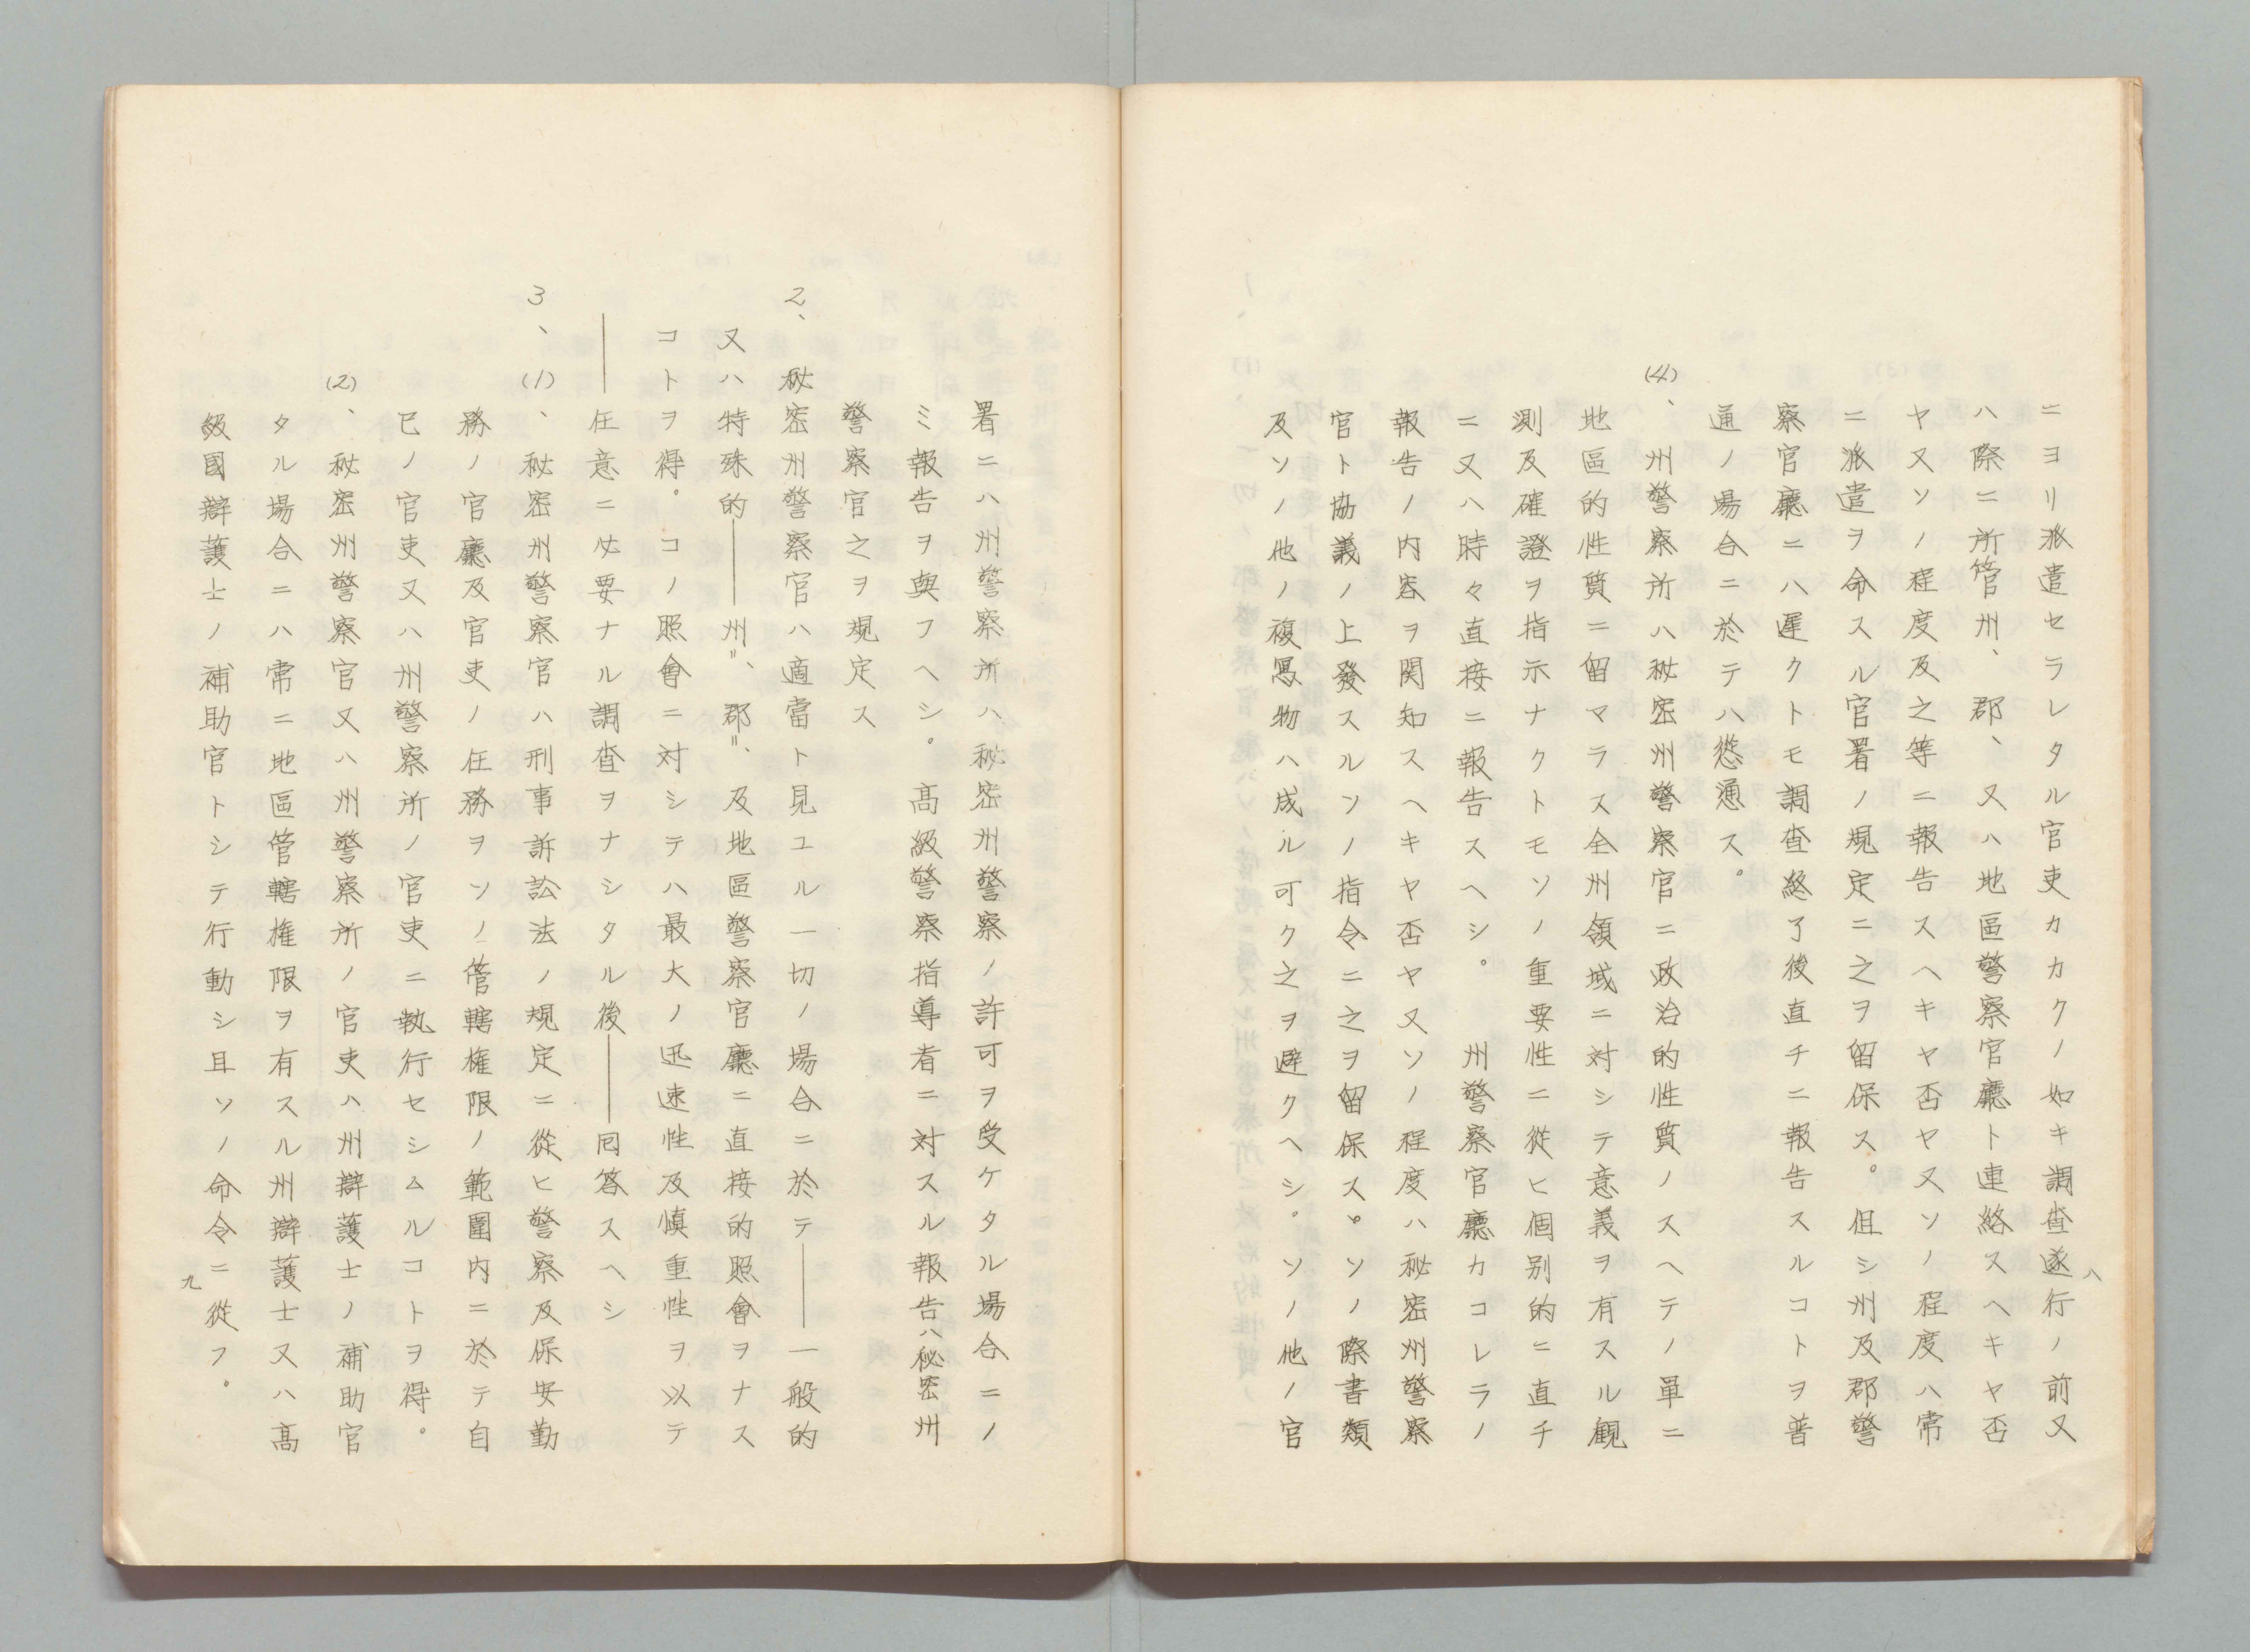 ニヨリ派遣セラレタル官吏カカクノ如キ調査遂行ノ前又
ハ際ニ所管州、郡、又ハ地區警察官廳ト連絡スヘキヤ否
ヤ又ソノ程度及之等ニ報告スヘキヤ否ヤ又ソノ程度ハ常
ニ派遣ヲ命スル官署ノ規定ニ之ヲ留保ス。但シ州及郡警
察官廳ニハ遲クトモ調査終了後直チニ報告スルコトヲ普
通ノ場合ニ於テハ慫慂ス。
(4)、州警察所ハ秘密州警察官ニ政治的性質ノスヘテノ單ニ
地區的性質ニ留マラス全州領域ニ対シテ意義ヲ有スル観
測及確證ヲ指示ナクトモソノ重要性ニ從ヒ個別的ニ直チ
ニ又ハ時々直接ニ報告スヘシ。州警察官廳カコレラノ
報告ノ内容ヲ関知スヘキヤ否ヤ又ソノ程度ハ秘密州警察
官ト協議ノ上發スルソノ指令ニ之ヲ留保ス。ソノ際書類
及ソノ他ノ複寫物ハ成ル可ク之ヲ避クヘシ。ソノ他ノ官
八
署ニハ州警察所ハ秘密州警察ノ許可ヲ受ケタル場合ニノ
ミ報告ヲ與フヘシ。高級警察指導者ニ対スル報告ハ秘密州
警察官之ヲ規定ス
2、秘密州警察官ハ適當ト見ユル一切ノ場合ニ於テ——一般的
又ハ特殊的——州〃、郡〃、及地區警察官廳ニ直接的照會ヲナス
コトヲ得。コノ照會ニ対シテハ最大ノ迅速性及慎重性ヲ以テ
——任意ニ必要ナル調査ヲナシタル後——回答スヘシ
3、(1)、秘密州警察官ハ刑事訴訟法ノ規定ニ從ヒ警察及保安勤
務ノ官廳及官吏ノ任務ヲソノ管轄権限ノ範圍内ニ於テ自
已ノ官吏又ハ州警察所ノ官吏ニ執行セシムルコトヲ得。
(2)、秘密州警察官又ハ州警察所ノ官吏ハ州辯護士ノ補助官
タル場合ニハ常ニ地區管轄権限ヲ有スル州辯護士又ハ高
級國辯護士ノ補助官トシテ行動シ且ソノ命令ニ從フ。
九